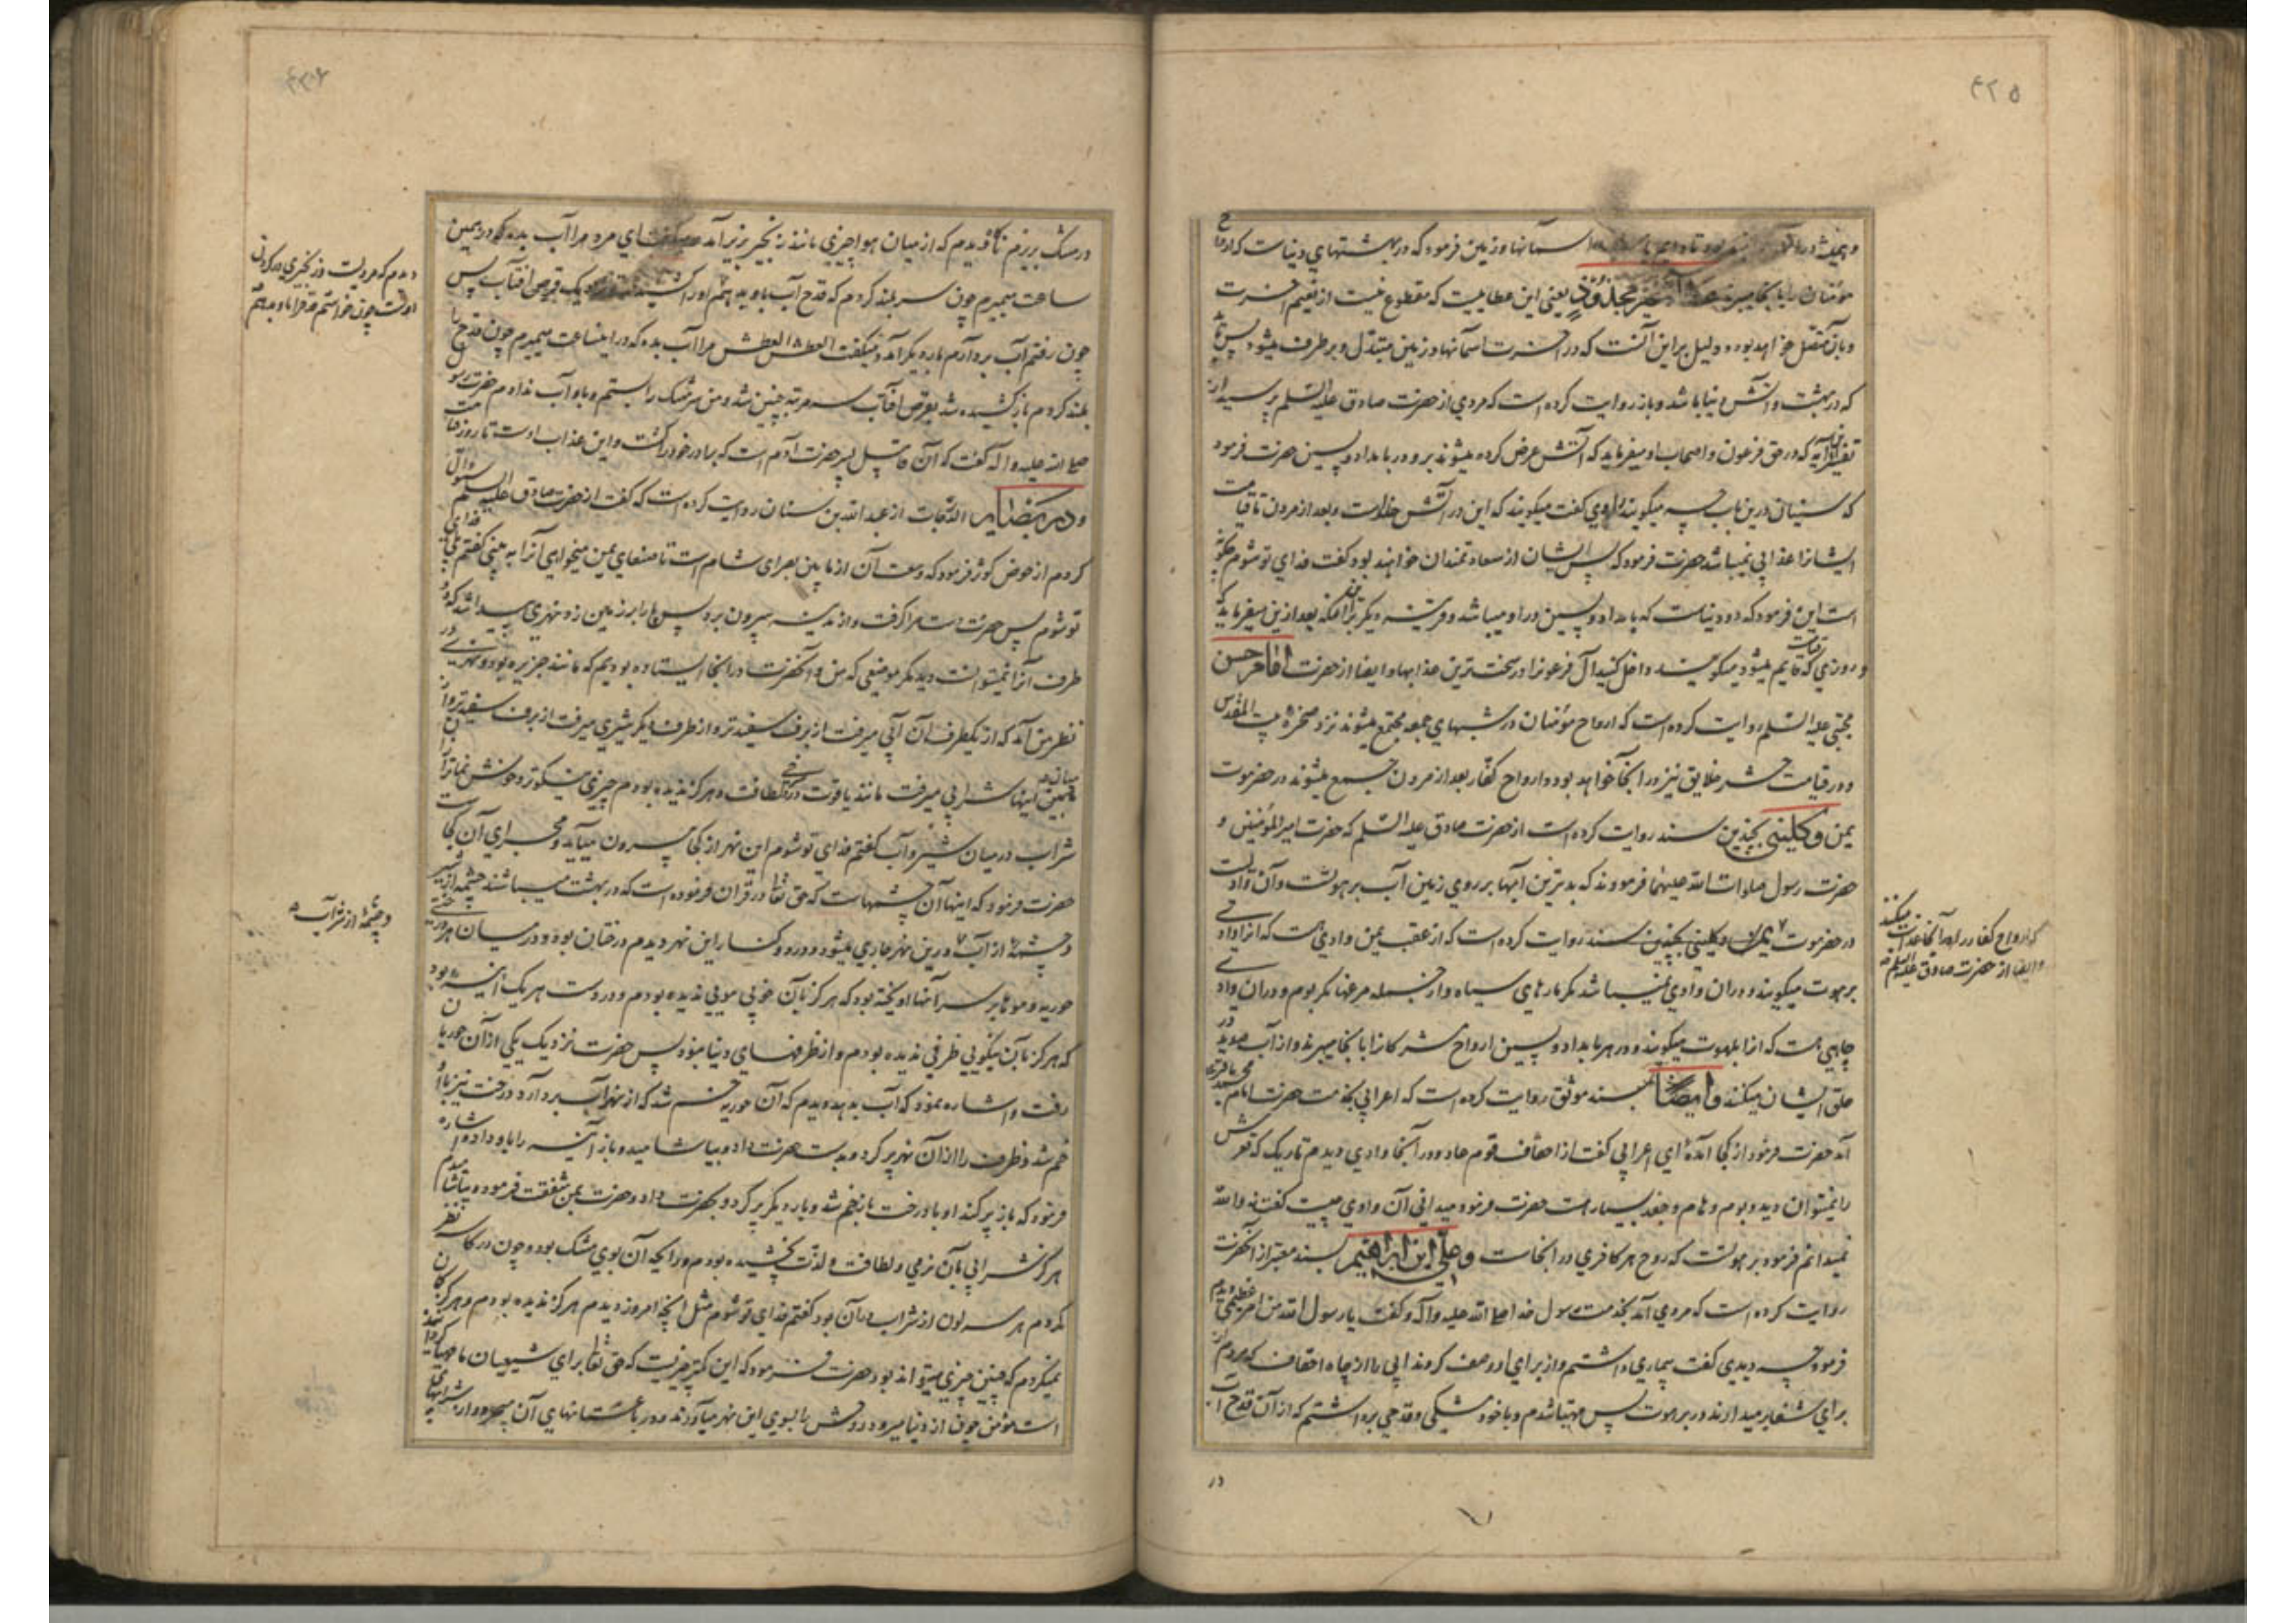 ۴۲۵
آسمانها و زمین فرمود که در بهشتهای دنیاست که ارواح
مؤمنان را بانجا میبرند غیر مجذوذ یعنی این عطاییست که مقطوع نیست از نعیم آخرت
و بان متصل خواهد بود و دلیل بر این آنست که در آخرت آسمانها و زمین متبدل و برطرف میشود پس باید
که در بهشت و آتش دنیا باشد و باز روایت کرده است که مردی از حضرت صادق علیه السلم پرسید از
تفسیر این آیه که در حق فرعون و اصحاب او میفرماید که آتش عرض کرده میشوند برو در بامداد و پسین حضرت فرمود
که سنیان درین باب چه میگویند راوی گفت میگویند که این در آتش خلداست و بعد از مردن تا قیامت
ایشانرا عذابی نمیباشد حضرت فرمود که پس ایشان از سعادتمندان خواهند بود گفت فدای تو شوم چگونه
است این فرمود که در دنیاست که بامداد و پسین در او میباشد و قرینه دیگر بر آنکه بعد ازین میفرماید که
و روزی که قیامت قایم میشود میگویند داخل کنید آل فرعونرا در سخت ترین عذابها و ایضا از حضرت امام حسن
مجتبی علیه السلم روایت کرده است که ارواح مؤمنان در شبهای جمعه مجتمع میشوند نزد صخرهٔ بیت المقدس
و در قیامت حشر خلایق نیز در انجا خواهد بود و ارواح کفار بعد از مردن جمع میشوند در حضرموت
یمن و کلینی بچندین سند روایت کرده است از حضرت صادق علیه السلم که حضرت امیر المؤمنین و
حضرت رسول صلوات الله علیهما فرمودند که بدترین آبها بر روی زمین آب برهوتست و آن وادیست
در حضرموت یمن و کلینی بچندین سند روایت کرده است که از عقب یمن وادیی هست که آنرا وادی
برهوت میگویند و دران وادی نمیباشد مگر مارهای سیاه و از جمله مرغها مگر بوم و دران وادی
چاهی هست که آنرا بلهوت میگویند و در هر بامداد و پسین ارواح مشرکانرا بانجا میبرند و از آب صدید در
حلق ایشان میکنند و ایضا بسند موثق روایت کرده است که اعرابی بخدمت حضرت امام محمد باقر
آمد حضرت فرمود از کجا آمدهٔ ای اعرابی گفت از احقاف قوم عاد و در آنجا وادی دیدم تاریک که قعرش
را نمیتوان دید و بوم و هام و جغد بسیار هست حضرت فرمود میدانی آن وادی چیست گفت نه والله
نمیدانم فرمود برهوتست که روح هر کافری در انجاست و علی ابن ابراهیم بسند معتبر از آنحضرت
روایت کرده است که مردی آمد بخدمت رسول خدا صلی الله علیه و آله و گفت یا رسول الله من امر عظیمی دیدم
فرمود چه دیدی گفت بیماری داشتم و از برای او وصف کردند آبی را از چاه احقاف که مردم از
برای شفا برمیدارند در برهوت پس مهیا شدم و با خود مشکی و قدحی برداشتم که از آن قدح آب
در
که ارواح کفار در آنجا عذاب میکنند
و ایضا از حضرت صادق علیه السلم
در مشک بریزم ناگاه دیدم که از میان هوا چیزی مانند زنجیر بزیر آمد و میگفت ای مرد مرا آب بده که در همین
ساعت میمیرم چون سر بلند کردم که قدح آب باو بدهم او را کشیدند تا نزدیک قرص آفتاب پس
چون رفتم آب بردارم بار دیگر آمد و میگفت العطش العطش مرا آب بده که در اینساعت میمیرم چون قدح را
بلند کردم باز کشیده شد بقرص آفتاب سه مرتبه چنین شد و من سر مشک را بستم و باو آب ندادم حضرت رسول
صلی الله علیه و آله گفت که آن قابیل پسر حضرت آدم است که برادر خود را کشت و این عذاب اوست تا روز قیامت
و در بصایر الدرجات از عبد الله بن سنان روایت کرده است که گفت از حضرت صادق علیه السلم سؤال
کردم از حوض کوثر فرمود که وسعت آن از مابین بصرای شام است تا صنعای یمن میخواهی آنرا به بینی گفتم بلی فدای
تو شوم پس حضرت دست مرا گرفت و از مدینه بیرون برد پس پا را بر زمین زد نهری پیدا شد که دو
طرف آنرا نمیتوانست دید مگر موضعی که من و آنحضرت در انجا ایستاده بودیم که مانند جزیره بود و نهری در
نظر من آمد که از یکطرف آن آبی میرفت از برف سفیدتر و از طرف دیگر شیری میرفت از برف سفیدتر و از
میان اینها شرابی میرفت مانند یاقوت در سرخی و لطافت و هرگز ندیده بودم چیزی نیکوتر و خوش نماتر از آن
شراب در میان شیر و آب گفتم فدای تو شوم این نهر از کجا بیرون میآید و مجرای آن کجاست
حضرت فرمود که اینها آن چشمهاست که حق تعالی در قران فرموده است که در بهشت میباشند چشمهٔ از شیر
و چشمهٔ از آب درین نهر جاری میشود و در دو کنار این نهر دیدم درختان بود و در میان هر درختی
حوریه و موها بر سر آنها اویخته بود که هرگز بآن خوبی مویی ندیده بودم و در دست هر یک آنیه بود
که هرگز بآن نیکویی ظرفی ندیده بودم و از ظرفهای دنیا نبود پس حضرت نزدیک یکی از آن حوریان
رفت و اشاره نمود که آب بدهد دیدم که آن حوریه خم شد که از نهر آب بردارد درخت نیز با او
خم شد و ظرف را از آن نهر پر کرد و بدست حضرت داد و بیاشامید و باز آنیه را باو داد و اشاره
فرمود که باز پر کند او با درخت باز خم شد و بار دیگر پر کرد و بحضرت داد و حضرت بمن شفقت فرمود و بیاشامیدم
هرگز شرابی بآن نرمی و لطافت و لذت نچشیده بودم و رایحه آن بوی مشک بود و چون در کاسه نظر
کردم هر سه لون از شراب در آن بود گفتم فدای تو شوم مثل آنچه امروز دیدم هرگز ندیده بودم و هرگز گمان
نمیکردم که چنین چیزی میتواند بود حضرت فرمود که این کمتر چیزیست که حق تعالی برای شیعیان ما مهیا گردانیده
است مؤمن چون از دنیا میرود روحش را بسوی این نهر میآورند و در باغستانهای آن میچرد و از شرابهای
دیدم که مردیست و زنجیری در گردن
اوست چون خواستم قدح را باو بدهم
و چشمهٔ از شراب